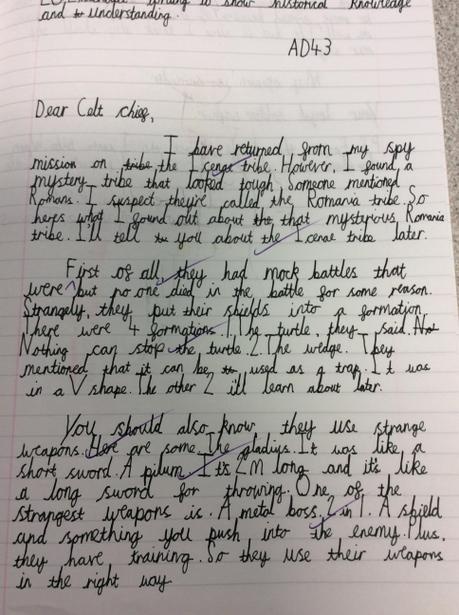 writing to show historical knowledge
and understanding.
AD43
Dear Celt chief,
I have returned from my spy
mission on tribe the Icenae tribe. However, I found a
mystery tribe that looked tough, Someone mentioned
Romans. I suspect they're called the Romania tribe. So
hers what I found out about the that mysterious Romania
tribe. I'll tell you about the Icenae tribe later.
First of all, they had mock battles that
were but no one died in the battle for some reason.
Strangely, they put their shields into a formation.
There were 4 formations. 1. The turtle, they said. Not
Nothing can stop the turtle. 2. The wedge. They
mentioned that it can be used as a trap. It was
in a V shape. The other 2 ill learn about later.
You should also know they use strange
weapons. Here are some. The gladius. It was like a
short sword. A pilum. Its 2M long and it's like
a long sword for throwing. One of the
strangest weapons is. A metal boss. 2 in 1. A shield
and something you push into the enemy. Plus,
they have training. So they use their weapons
in the right way